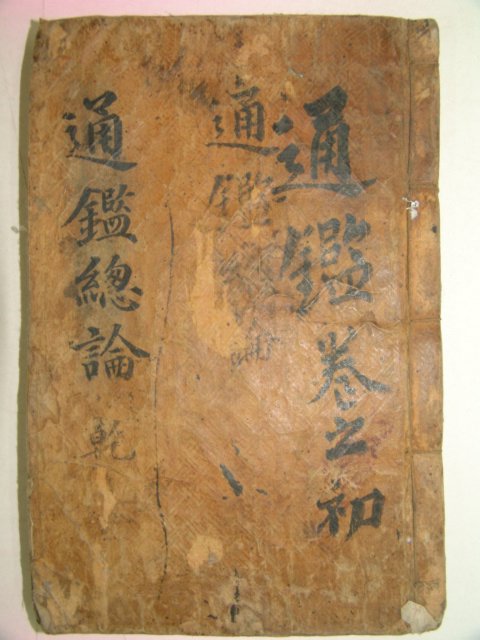 通鑑卷之初
通鑑總論
通鑑總論 乾